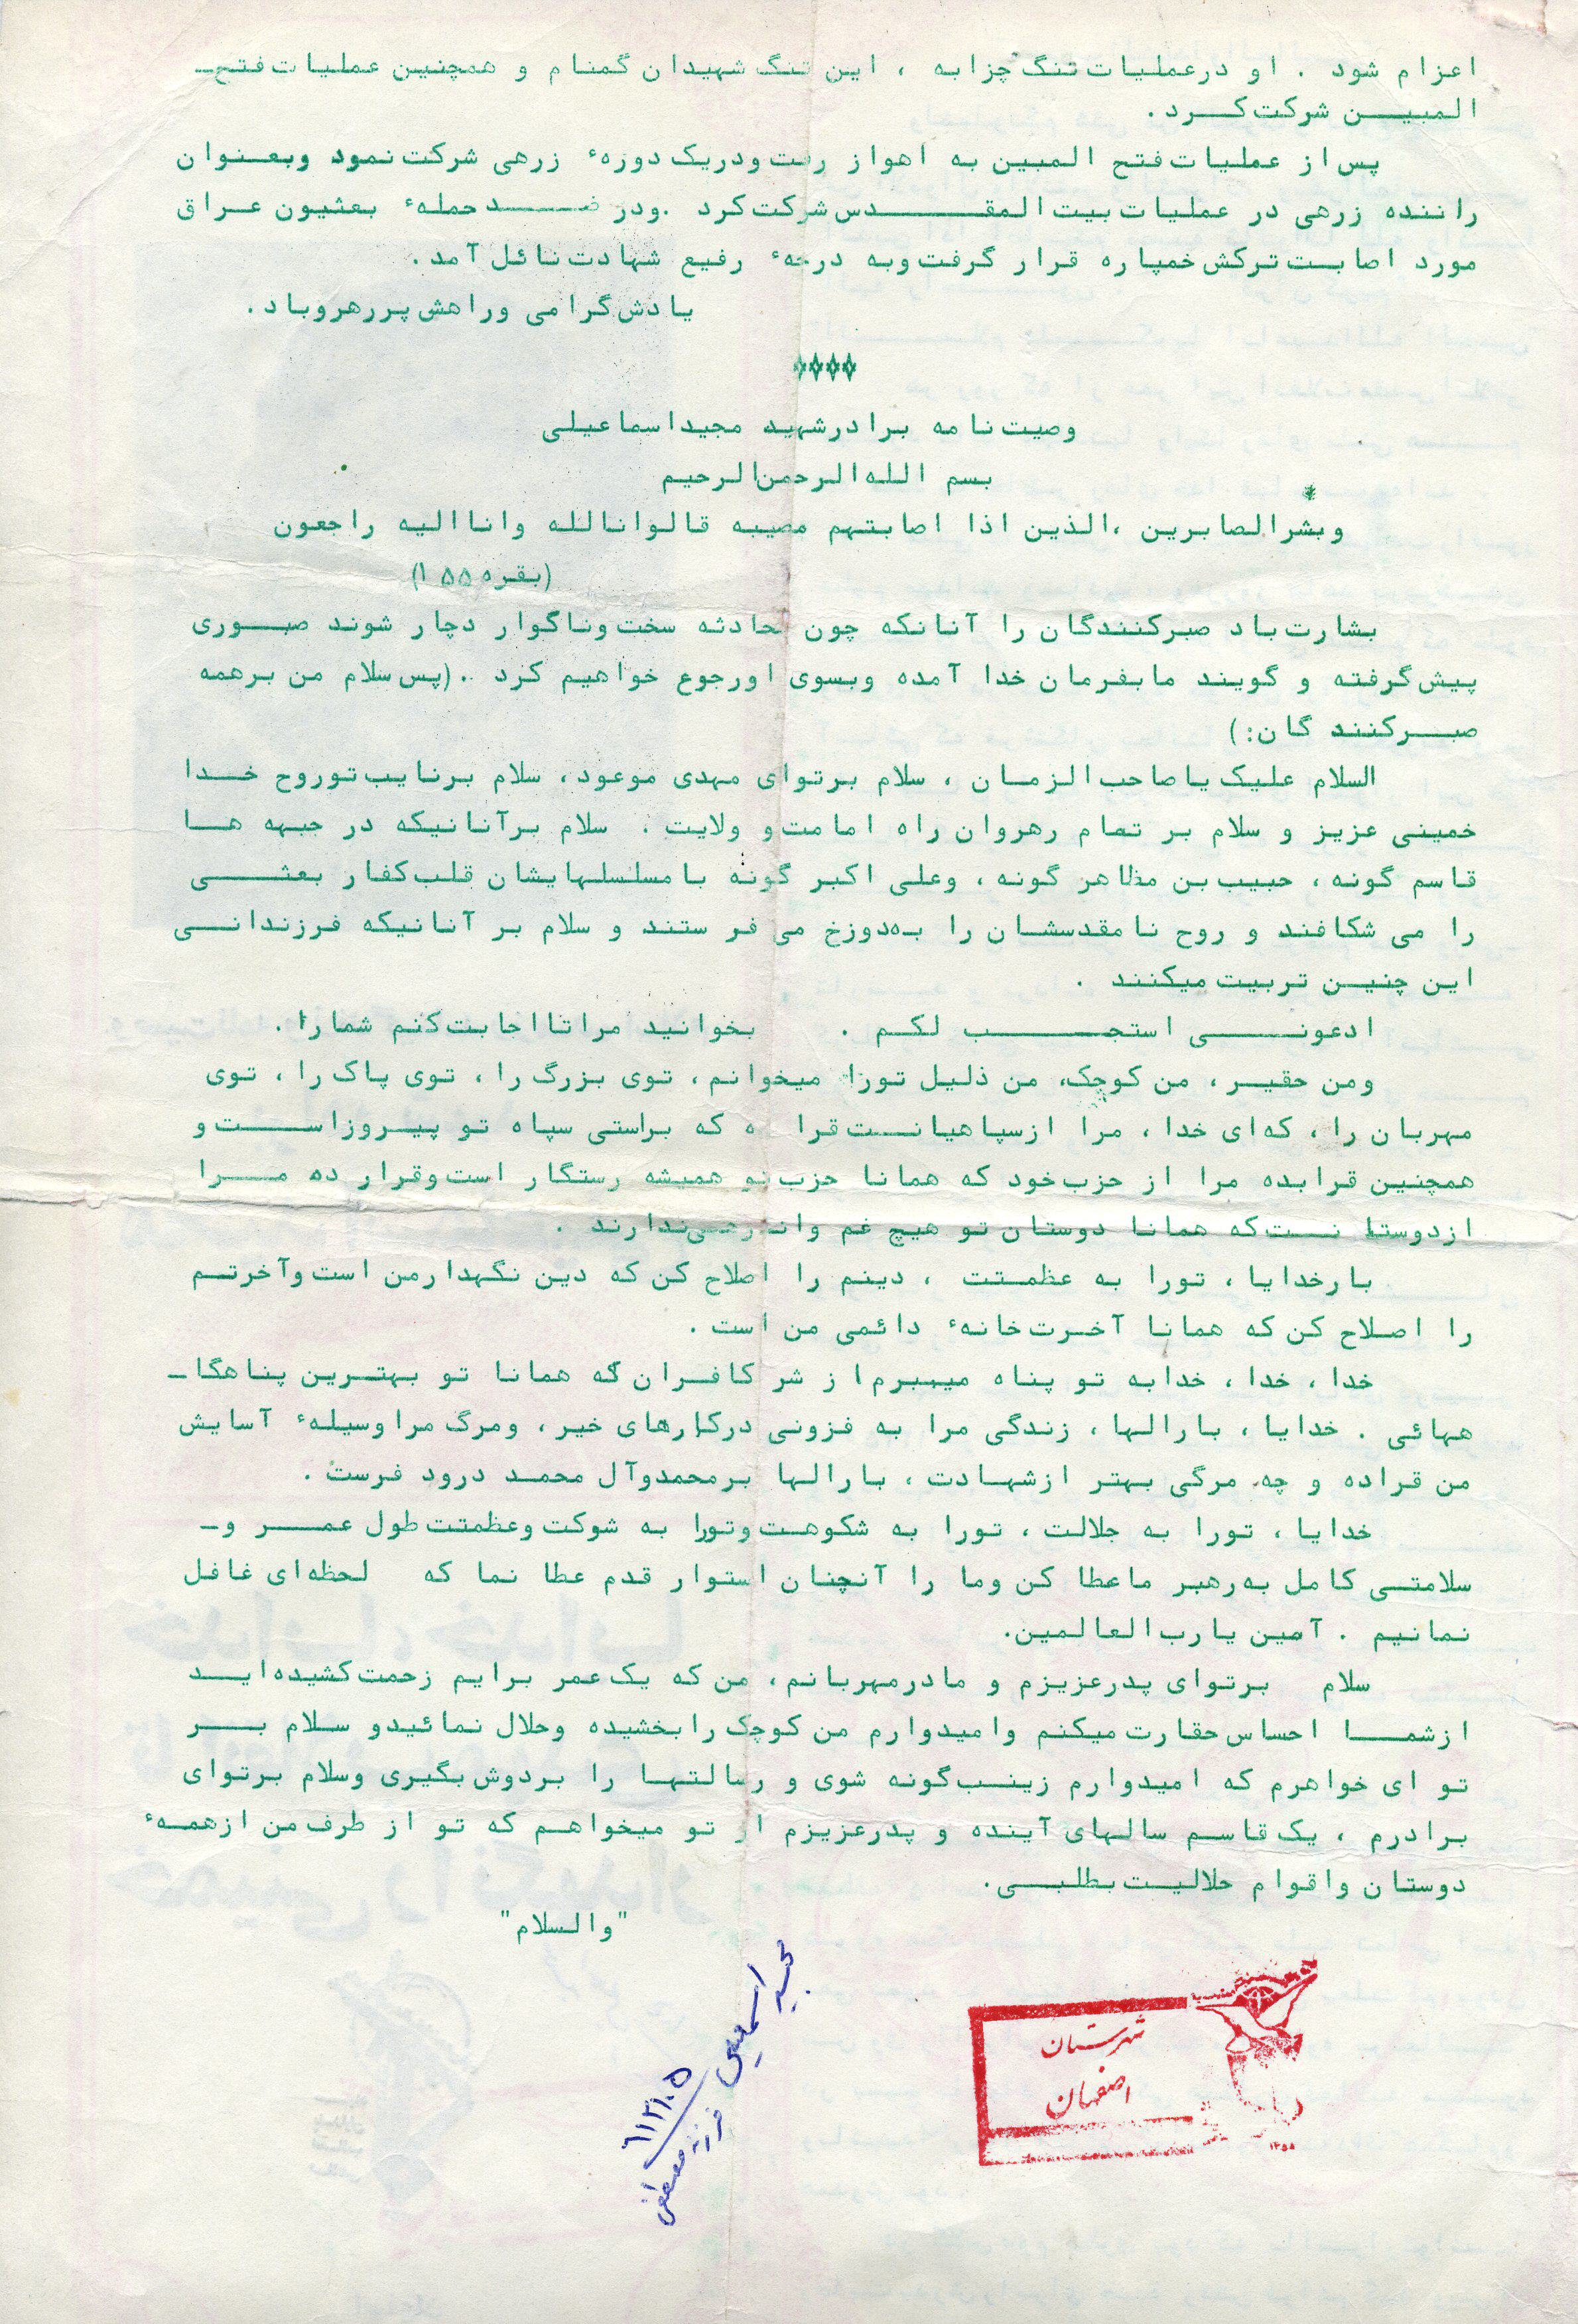 اعزام شود . او درعملیات تنگ چزابه ، این تنگ شهیدان گمنام و همچنین عملیات فتح ـ
المبیـــن شرکت کـــرد .
پس از عملیات فتح المبین به اهواز رفت ودریک دوزهٔ زرهی شرکت نمود وبعـنوان
راننده زرهی در عملیات بیت المقـــدس شرکت کرد .ودر ضـــد حملهٔ بعثیون عـراق
مورد اصابـت ترکش خمپاره قرار گرفت وبه درجهٔ رفیع شهادت نائل آمد .
یادش گرامی وراهش پررهروباد .
وصیت نامه برادرشهید مجیداسماعیلی
بسم اللـه الـرحمن الـرحیم
وبشرالصابرین ،الـذین اذا اصابتهم مصیبه قالـوانالـله واناالیه راجعون
(بقره ۱۵۵)
بشارت باد صبرکنندگان را آنانکه چون حادثه سخت وناگوار دچار شوند صـــوری
پیش گرفته و گویند مابفرمان خدا آمده وبسوی اورجوع خواهیم کرد .(پس سلام من برهمه
صبـــرکنند گان:)
السلام علیک یاصاحب الـزمـان ، سلام برتوای مهدی موعود، سلام برنایب توروح خـــدا
خمینی عزیز و سلام بر تمام رهروان راه امامت و ولایت . سلام برآنانیکه در جبهه هــا
قاسم گونه ، حبیب بن مظاهر گونه ، وعلی اکبر گونه بامسلسلهایشان قلب کفار بعثـــی
را می شکافند و روح نامقدسشان را به دوزخ می فرستند و سلام بر آنانیکه فرزندانـــی
این چنیـن تربیت میکنند .
ادعونـــی استجـــب لکـم . بخوانید مراتااجابت کنم شمارا .
ومن حقیـر ، من کوچک، من ذلیل تورا میخوانم، توی بزرگ را ، توی پاک را ، توی
مهربان را ، که ای خدا ، مرا ازسپاهیانـت قرا ه که براستی سپاه تو پیـروزاســـت و
همچنین قرابده مرا از حزب خود که همانا حزب تو همیشه رستگار است وقرار ده مـــرا
ازدوستا نـــت که همانا دوستان تو هیچ غم واند‌وحی ندارند .
بارخدایا ، تورا به عظمـتت ، دینم را اصلاح کن که دین نگهدارمن است وآخرتـم
را اصـلاح کن که همانا آخـرت خانهٔ دائمی من است .
خدا ، خدا ، خدابه تو پناه میبـرم از شر کافـران که همانا تو بهتـرین پناهگاـ
ههائی . خدایا ، بارالـها ، زندگی مرا به فزونی درکارهای خیر ، ومرگ مراوسیلهٔ آسایش
من قراده و چه مرگی بهتر ازشهـادت ، بارالـها برمحمدوآل محمـد درود فرست .
خدایا ، تورا به جلالت ، تورا به شکوهـت وتورا به شوکت وعظمتت طول عمـــر وـ
سلامتـی کامل به رهبر ماعطا کن وما را آنچنان استوار قدم عطا نما که لحظه ای غافل
نمانیم . آمین یارب العالـمین.
سلام برتوای پدرعزیزم و مادرمهربانم، من که یک عمر برایم زحمت کشیده ایـــد
ازشمـــا احساس حقارت میکنم وامیدوارم من کوچک رابخشیده وحلال نمائیدو سـلام بـــر
تو ای خواهرم که امیدوارم زینـب گونه شوی و رسالـتهـا را بردوش بگیری وسلام برتوای
برادرم ، یک قاسـم سالهای آینده و پدرعزیزم از تو میخواهـم که تو از طرف من ازهمـهٔ
دوستان واقوام حلالیـت بطلبـــی.
"والـسلام"
مجید اسماعیلی
فرزند مصطفی
شهرستان
اصفهان
۱۳۵۸